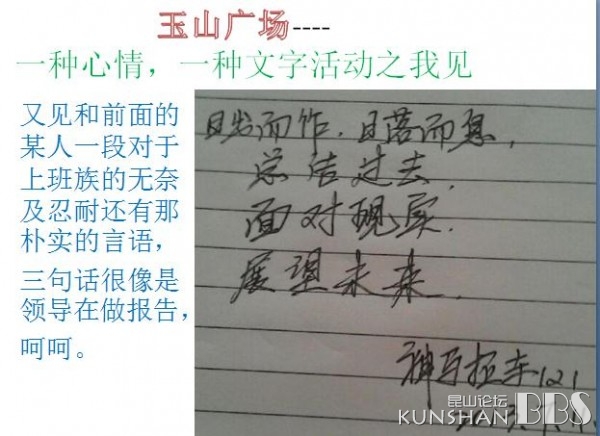 玉山广场----
一种心情，一种文字活动之我见
又见和前面的
某人一段对于
上班族的无奈
及忍耐还有那
朴实的言语，
三句话很像是
领导在做报告，
呵呵。
日出而作，日落而息，
总结过去，
面对现实，
展望未来。
神马拉车121
昆山论坛
KUNSHAN BBS